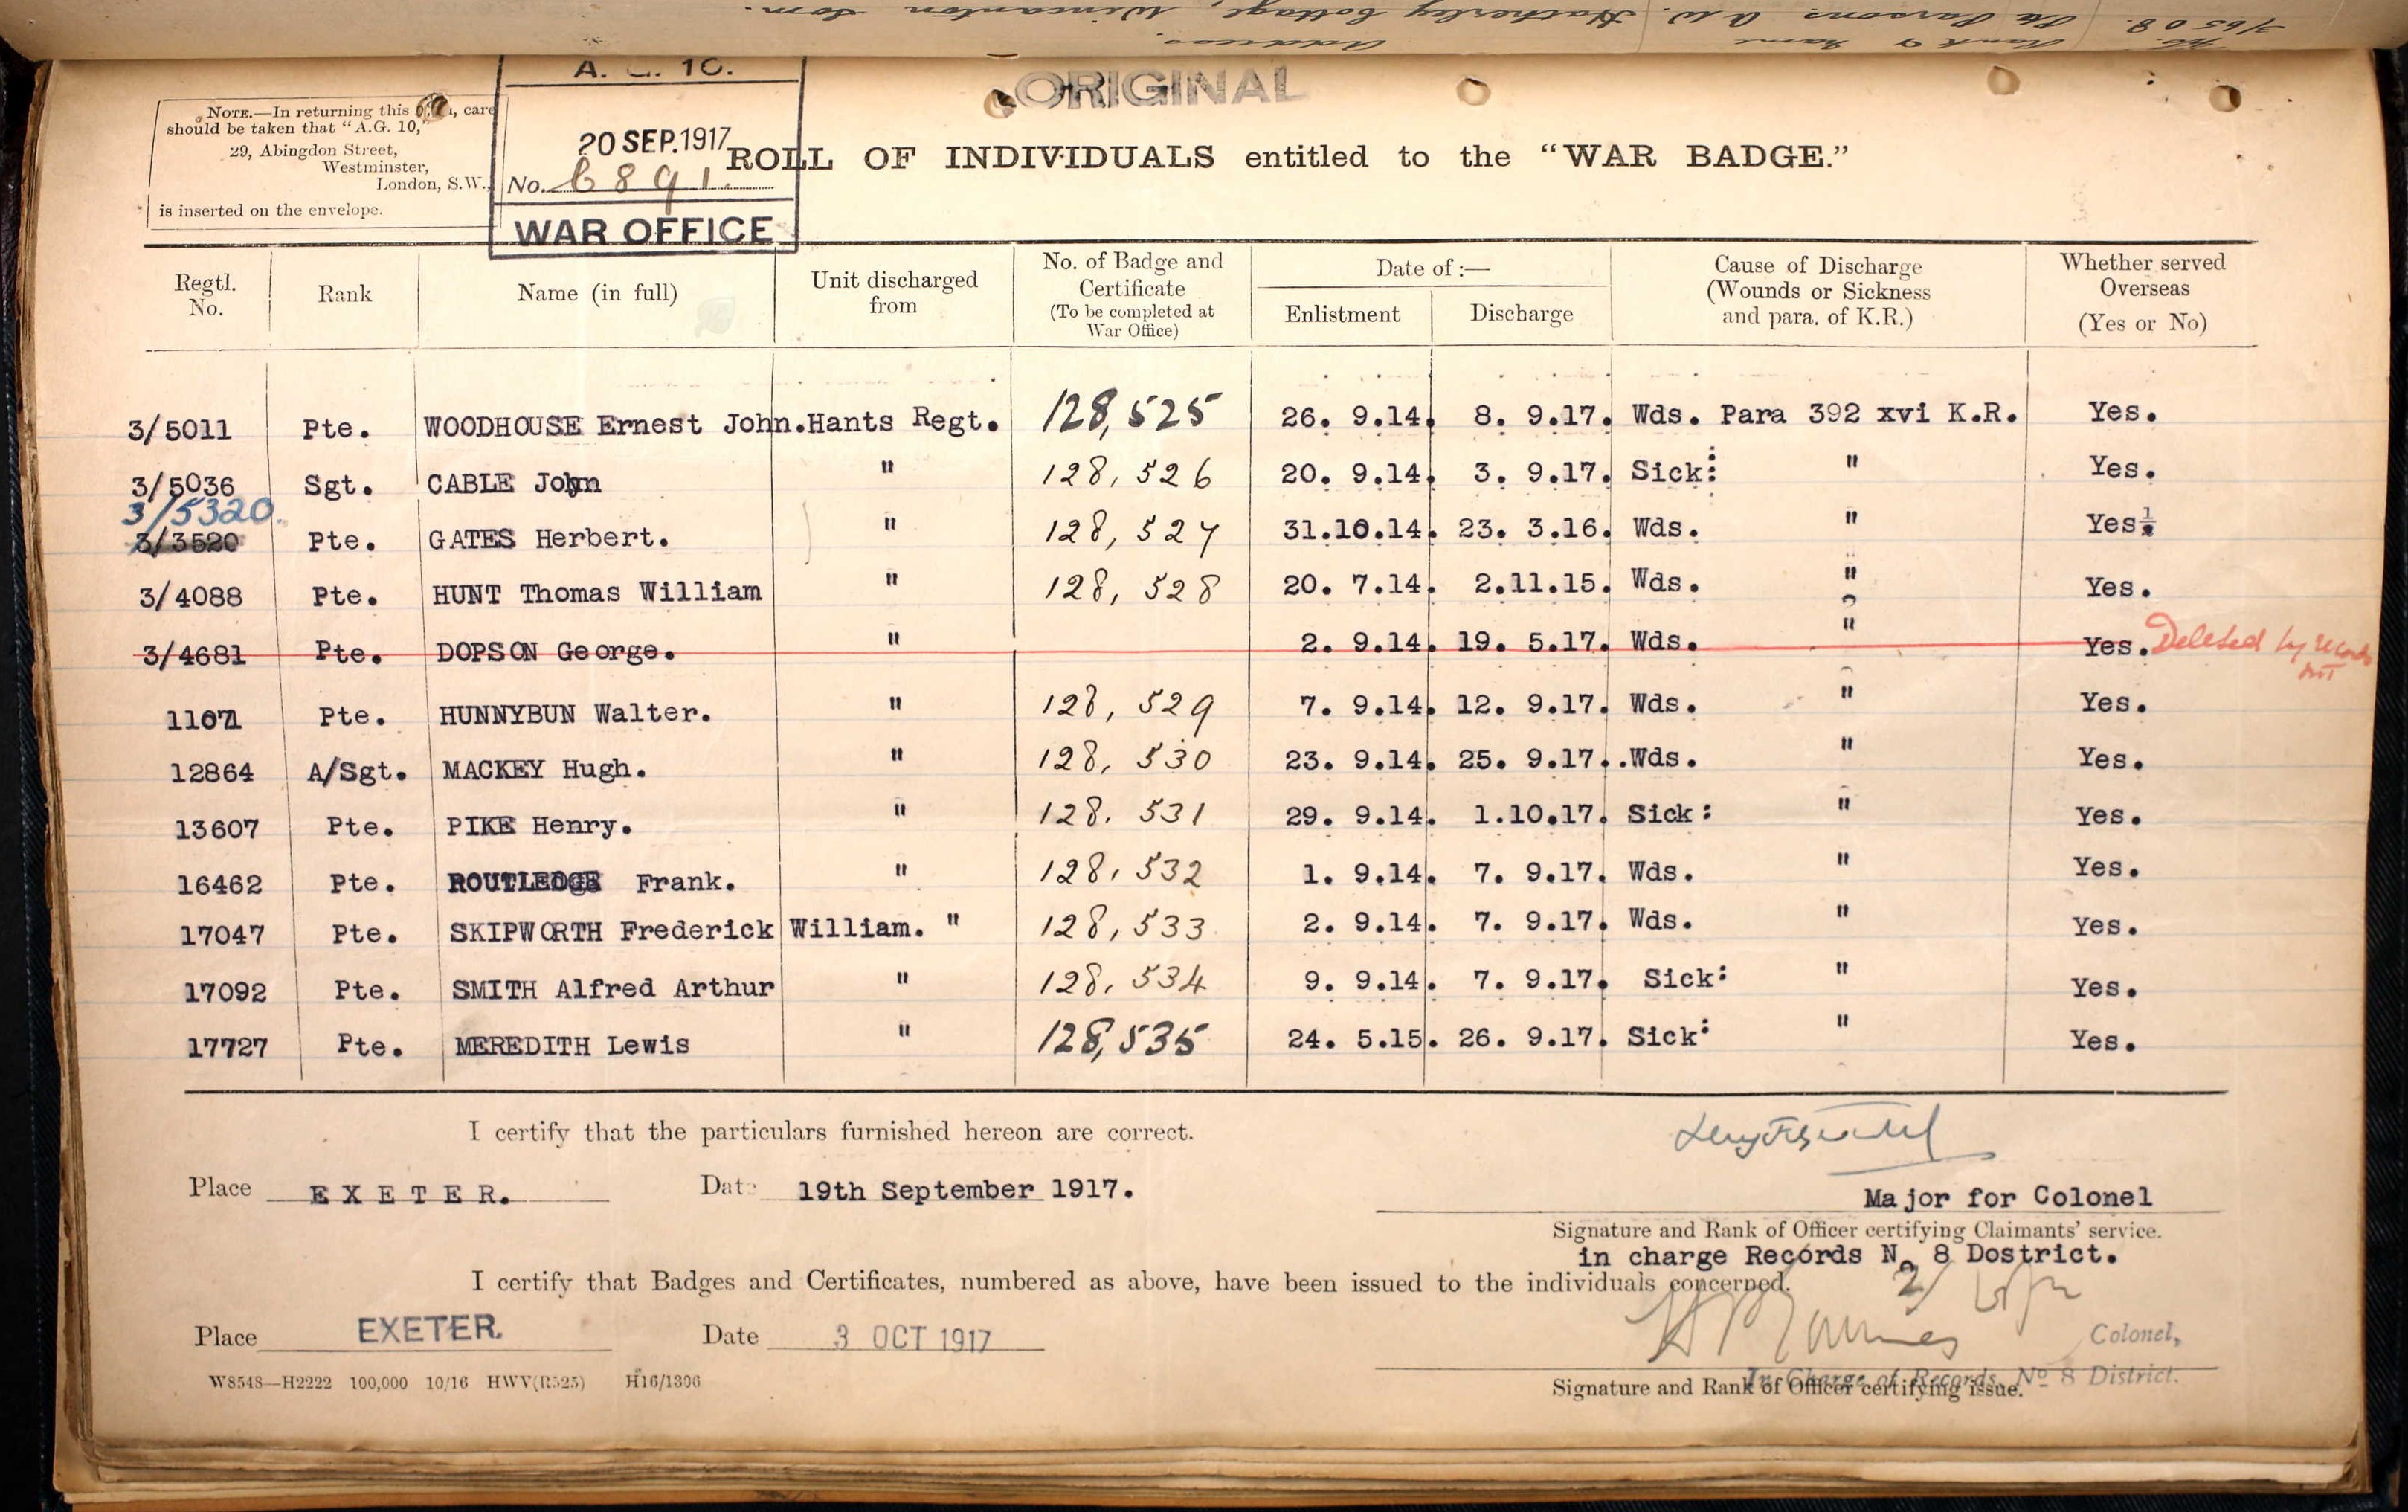 No. Rank & Name Address.
3/6508. Pte Parsons. A.W. Hatherley Cottage, Wincanton Som.
ORIGINAL
NOTE.—In returning this, care
should be taken that "A.G. 10,"
29, Abingdon Street,
Westminster,
London, S.W.,
is inserted on the envelope.
A. G. 10.
20 SEP. 1917
No. 6891.
WAR OFFICE
ROLL OF INDIVIDUALS entitled to the "WAR BADGE."
Regtl. No. | Rank | Name (in full) | Unit discharged from | No. of Badge and Certificate (To be completed at War Office) | Date of:— Enlistment | Discharge | Cause of Discharge (Wounds or Sickness and para. of K.R.) | Whether served Overseas (Yes or No)
3/5011 Pte. WOODHOUSE Ernest John. Hants Regt. 128,525 26. 9.14. 8. 9.17. Wds. Para 392 xvi K.R. Yes.
3/5036 Sgt. CABLE John " 128,526 20. 9.14. 3. 9.17. Sick: " Yes.
3/5320.
3/3520 Pte. GATES Herbert. " 128,527 31.10.14. 23. 3.16. Wds. " Yes.
3/4088 Pte. HUNT Thomas William " 128,528 20. 7.14. 2.11.15. Wds. " Yes.
3/4681 Pte. DOPSON George. " 2. 9.14. 19. 5.17. Wds. " Yes. Deleted by records
Pte. HUNNYBUN Walter. " 128,529 7. 9.14. 12. 9.17. Wds. " Yes.
12864 A/Sgt. MACKEY Hugh. " 128,530 23. 9.14. 25. 9.17..Wds. " Yes.
13607 Pte. PIKE Henry. " 128.531 29. 9.14. 1.10.17. Sick: " Yes.
16462 Pte. ROUTLEDGE Frank. " 128,532 1. 9.14. 7. 9.17. Wds. " Yes.
17047 Pte. SKIPWORTH Frederick William. " 128,533 2. 9.14. 7. 9.17. Wds. " Yes.
17092 Pte. SMITH Alfred Arthur " 128,534 9. 9.14. 7. 9.17. Sick: " Yes.
17727 Pte. MEREDITH Lewis " 128,535 24. 5.15. 26. 9.17. Sick: " Yes.
I certify that the particulars furnished hereon are correct.
Place EXETER. Date 19th September 1917.
Major for Colonel
Signature and Rank of Officer certifying Claimants' service.
in charge Records No 8 Dostrict.
I certify that Badges and Certificates, numbered as above, have been issued to the individuals concerned.
Place EXETER. Date 3 OCT 1917
Colonel,
In Charge of Records, No 8 District.
Signature and Rank of Officer certifying issue.
W8548—H2222 100,000 10/16 HWV(R525) H16/1306